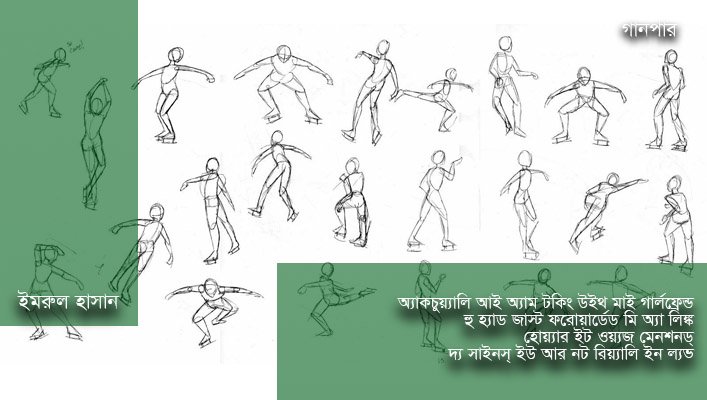 গানপার
ইমরুল হাসান
অ্যাকচুয়্যালি আই অ্যাম টকিং উইথ মাই গার্লফ্রেন্ড
হু হ্যাড জাস্ট ফরোয়ার্ডেড মি অ্যা লিঙ্ক
হোয়্যার ইট ওয়্যজ মেনশনড্
দ্য সাইনস্ ইউ আর নট রিয়্যালি ইন ল্যভ